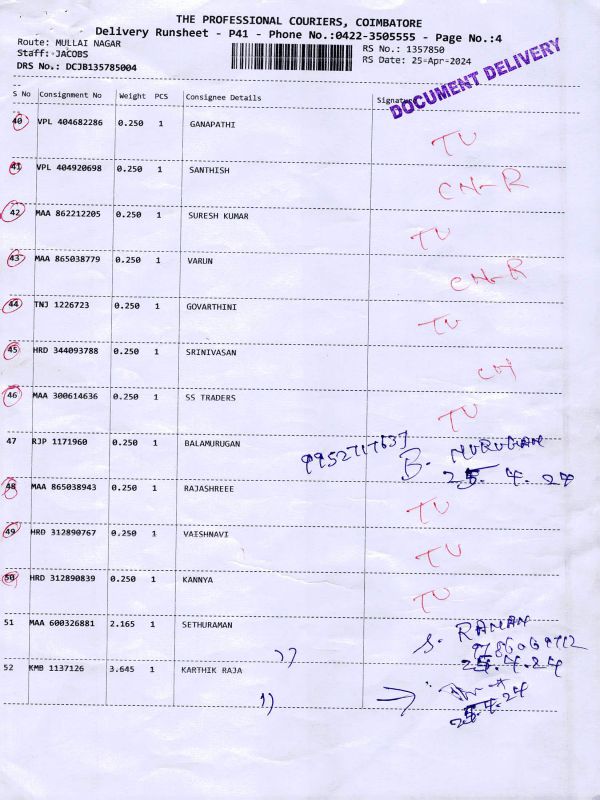 THE PROFESSIONAL COURIERS, COIMBATORE
Delivery Runsheet - P41 - Phone No.:0422-3505555 - Page No.:4
Route: MULLAI NAGAR RS No.: 1357850
Staff: JACOBS RS Date: 25-Apr-2024
DRS No.: DCJB135785004
DOCUMENT DELIVERY
S No Consignment No Weight PCS Consignee Details Signature
40 VPL 404682286 0.250 1 GANAPATHI TU
41 VPL 404920698 0.250 1 SANTHISH CN-R
42 MAA 862212205 0.250 1 SURESH KUMAR TU
43 MAA 865038779 0.250 1 VARUN CN-R
44 TNJ 1226723 0.250 1 GOVARTHINI TU
45 HRD 344093788 0.250 1 SRINIVASAN
46 MAA 300614636 0.250 1 SS TRADERS TU
47 RJP 1171960 0.250 1 BALAMURUGAN 9952717637 B. MURUGAN
25.4.24
48 MAA 865038943 0.250 1 RAJASHREEE TU
49 HRD 312890767 0.250 1 VAISHNAVI TU
50 HRD 312890839 0.250 1 KANNYA TU
51 MAA 600326881 2.165 1 SETHURAMAN S. RAMAN
25.4.24
52 KMB 1137126 3.645 1 KARTHIK RAJA
1) 25.4.24